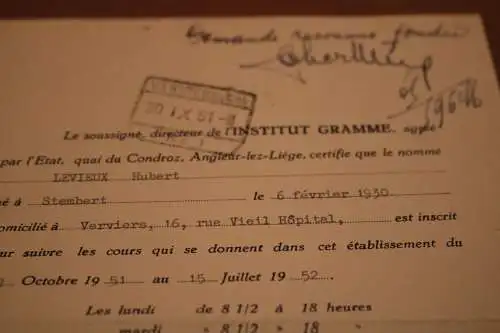 Demande reconnue fondée
20 IX 51-8
Le soussigné, directeur de l'INSTITUT GRAMME, agréé
par l'Etat, quai du Condroz, Angleur-lez-Liège, certifie que le nommé
LEVIEUX Hubert
né à Stembert le 6 février 1930
domicilié à Verviers, 16, rue Vieil Hôpital, est inscrit
ur suivre les cours qui se donnent dans cet établissement du
Octobre 1951 au 15 Juillet 1952.
Les lundi de 8 1/2 à 18 heures
mardi » 8 1/2 » 18 »